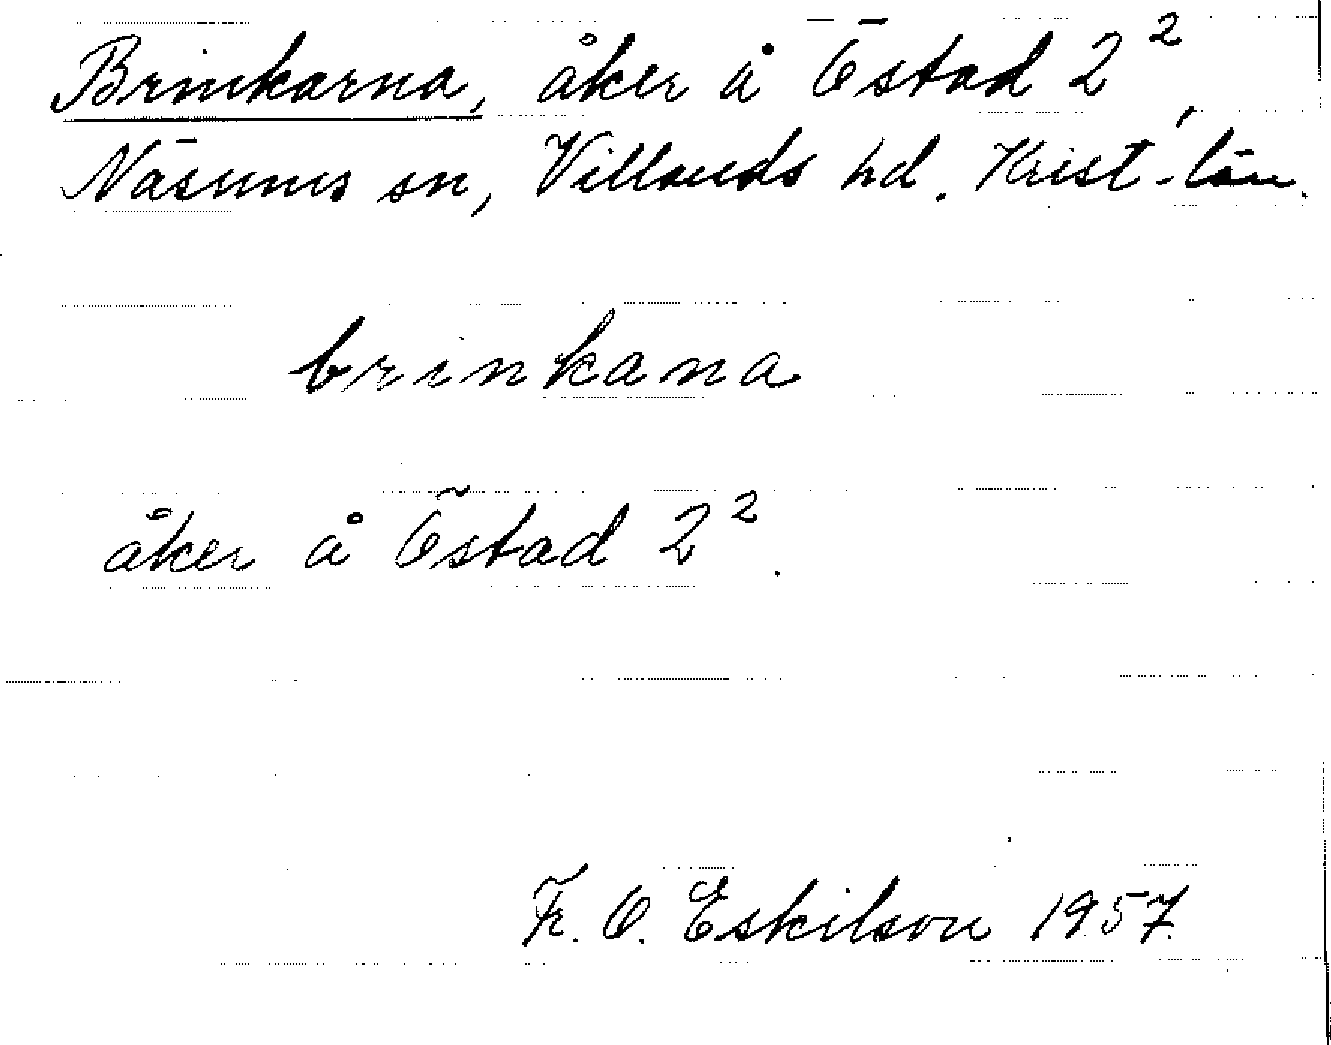 Brinkarna, åker å Östad 2²,
Näsums sn, Villands hd. Krist-län.
brinkana
åker å Östad 2².
Fr. O. Eskilson 1957.